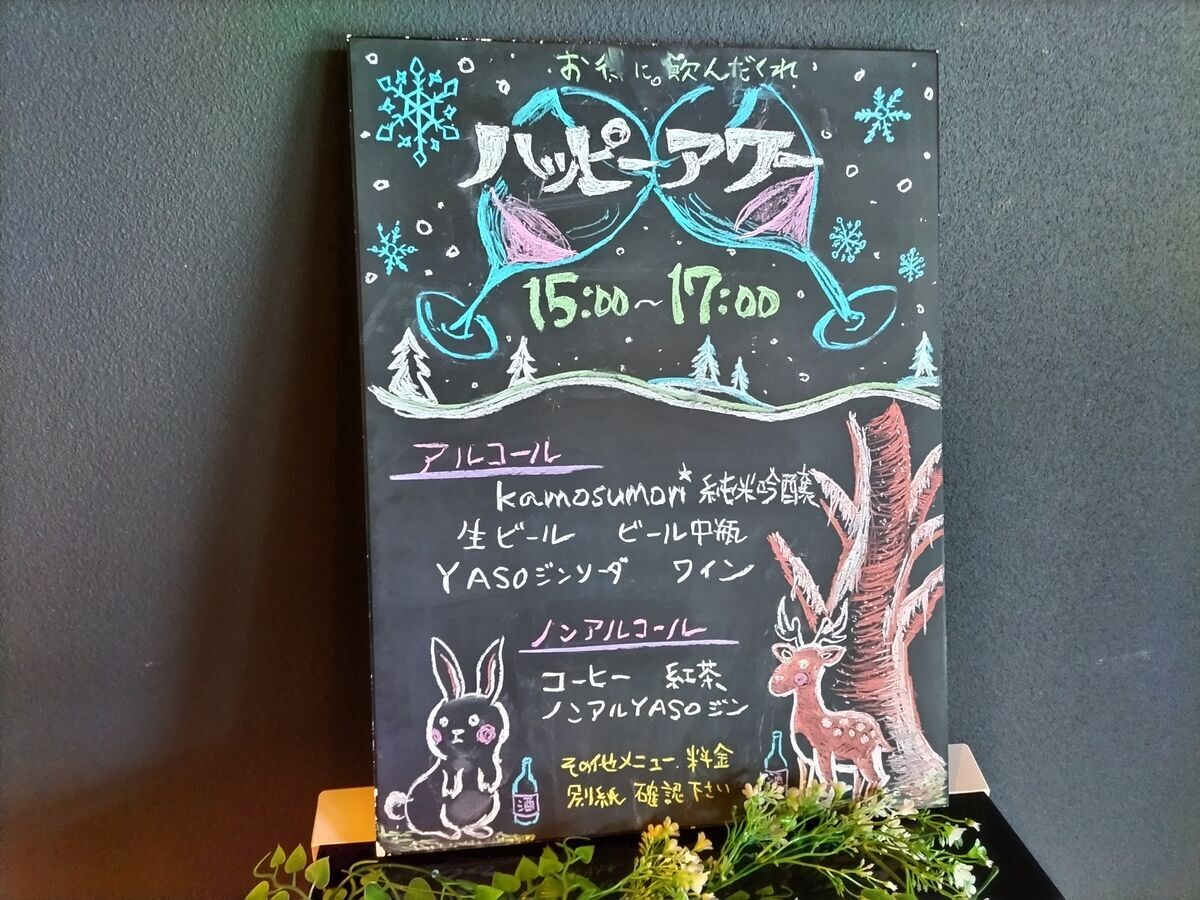 お得に飲んだくれ
ハッピーアワー
15:00～17:00
アルコール
kamosumori 純米吟醸
生ビール ビール中瓶
YASOジンソーダ ワイン
ノンアルコール
コーヒー 紅茶
ノンアルYASOジン
その他メニュー、料金
別紙 確認下さい
酒